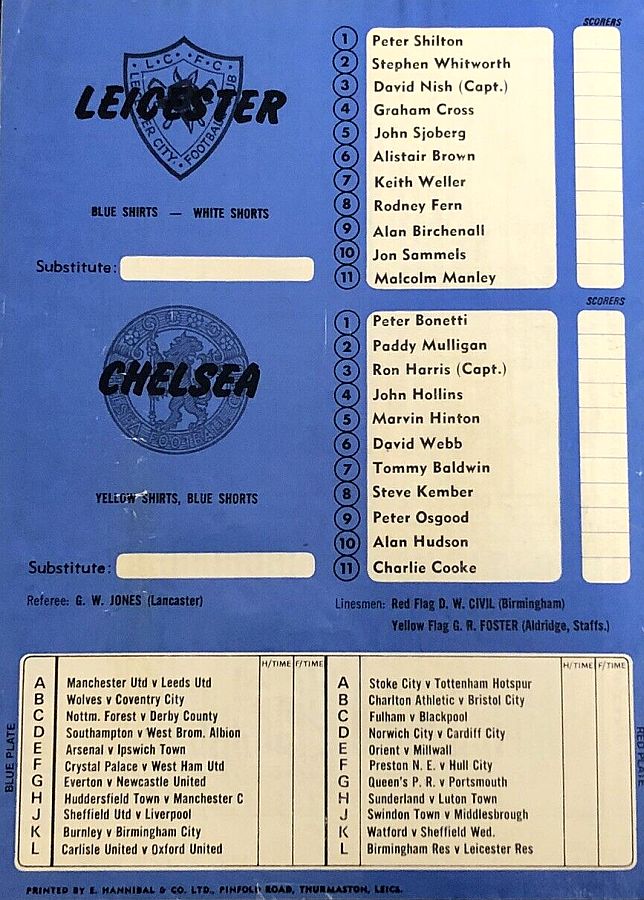 L·C·F·C
LEICESTER CITY·FOOTBALL CLUB
LEICESTER
BLUE SHIRTS — WHITE SHORTS
Substitute:
SCORERS
1 Peter Shilton
2 Stephen Whitworth
3 David Nish (Capt.)
4 Graham Cross
5 John Sjoberg
6 Alistair Brown
7 Keith Weller
8 Rodney Fern
9 Alan Birchenall
10 Jon Sammels
11 Malcolm Manley
CHELSEA
YELLOW SHIRTS, BLUE SHORTS
Substitute:
SCORERS
1 Peter Bonetti
2 Paddy Mulligan
3 Ron Harris (Capt.)
4 John Hollins
5 Marvin Hinton
6 David Webb
7 Tommy Baldwin
8 Steve Kember
9 Peter Osgood
10 Alan Hudson
11 Charlie Cooke
Referee: G. W. JONES (Lancaster)
Linesmen: Red Flag D. W. CIVIL (Birmingham)
Yellow Flag G. R. FOSTER (Aldridge, Staffs.)
BLUE PLATE
H/TIME F/TIME
A Manchester Utd v Leeds Utd
B Wolves v Coventry City
C Nottm. Forest v Derby County
D Southampton v West Brom. Albion
E Arsenal v Ipswich Town
F Crystal Palace v West Ham Utd
G Everton v Newcastle United
H Huddersfield Town v Manchester C
J Sheffield Utd v Liverpool
K Burnley v Birmingham City
L Carlisle United v Oxford United
H/TIME F/TIME
A Stoke City v Tottenham Hotspur
B Charlton Athletic v Bristol City
C Fulham v Blackpool
D Norwich City v Cardiff City
E Orient v Millwall
F Preston N. E. v Hull City
G Queen's P. R. v Portsmouth
H Sunderland v Luton Town
J Swindon Town v Middlesbrough
K Watford v Sheffield Wed.
L Birmingham Res v Leicester Res
RED PLATE
PRINTED BY E. HANNIBAL & CO. LTD., PINFOLD ROAD, THURMASTON, LEICS.